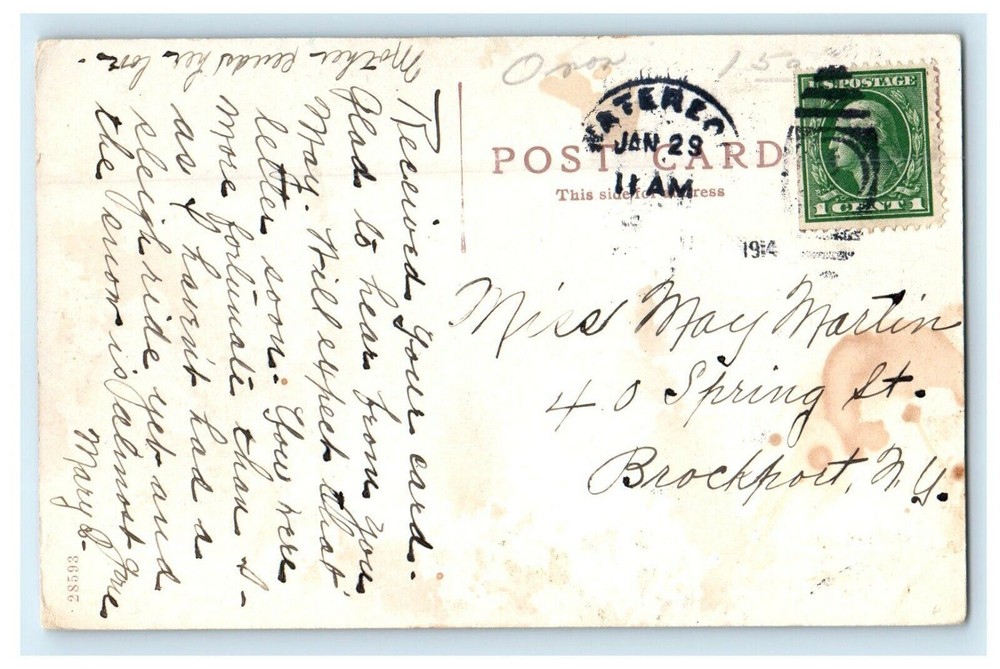 Mother sends her love.
Received your card.
Glad to hear from you
May. Will expect that
letter soon. You were
more fortunate than I-
as I haven't had a
sleigh ride yet and
the snow is allmost gone
Mary
28593
POST CARD
This side for address
WATERLOO
JAN 29
11 AM
1914
U.S. POSTAGE
1 CENT 1
Miss May Martin
40 Spring St.
Brockport, N.Y.